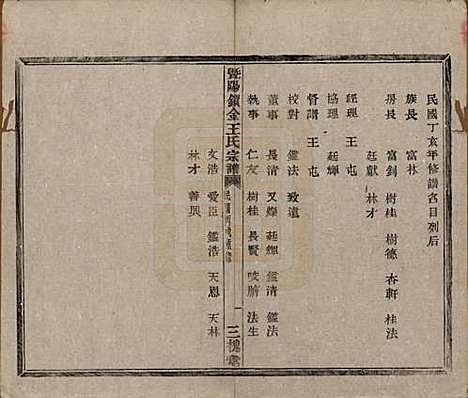 民國丁亥年修譜名目列后
族長 富林
房長 富釗 樹桂 樹德 杏軒 桂法
廷獻 林才
經理 王屯
協理 廷輝
督譜 王屯
校對 鑑法 致遠
董事 長清 又燦 廷輝 鑑清 鑑法
執事 仁友 樹桂 長賢 法生
暨陽鎖金王氏宗譜
三槐堂
文浩 愛臣 鑑浩 天恩 天林
林才 善興